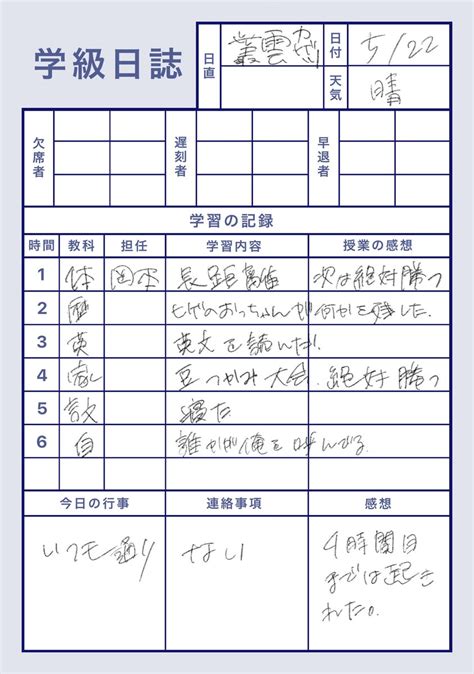 学級日誌
日直 叢雲カゲツ
日付 5/22
天気 晴
欠席者 遅刻者 早退者
学習の記録
時間 教科 担任 学習内容 授業の感想
1 体 岡本 長距離 次は絶対勝つ
2 歴 ヒゲのおっちゃんが何かを残した。
3 英 英文を読んだ!
4 家 豆つかみ大会、絶対勝つ
5 数 寝た
6 自 誰かが俺を呼んでる
今日の行事 連絡事項 感想
いつも通り ない 4時間目
までは起き
れたわ。